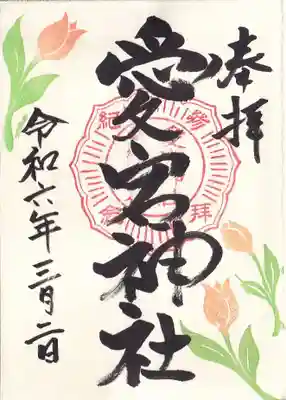 奉拝
愛宕神社
参拝紀念
令和六年三月二日